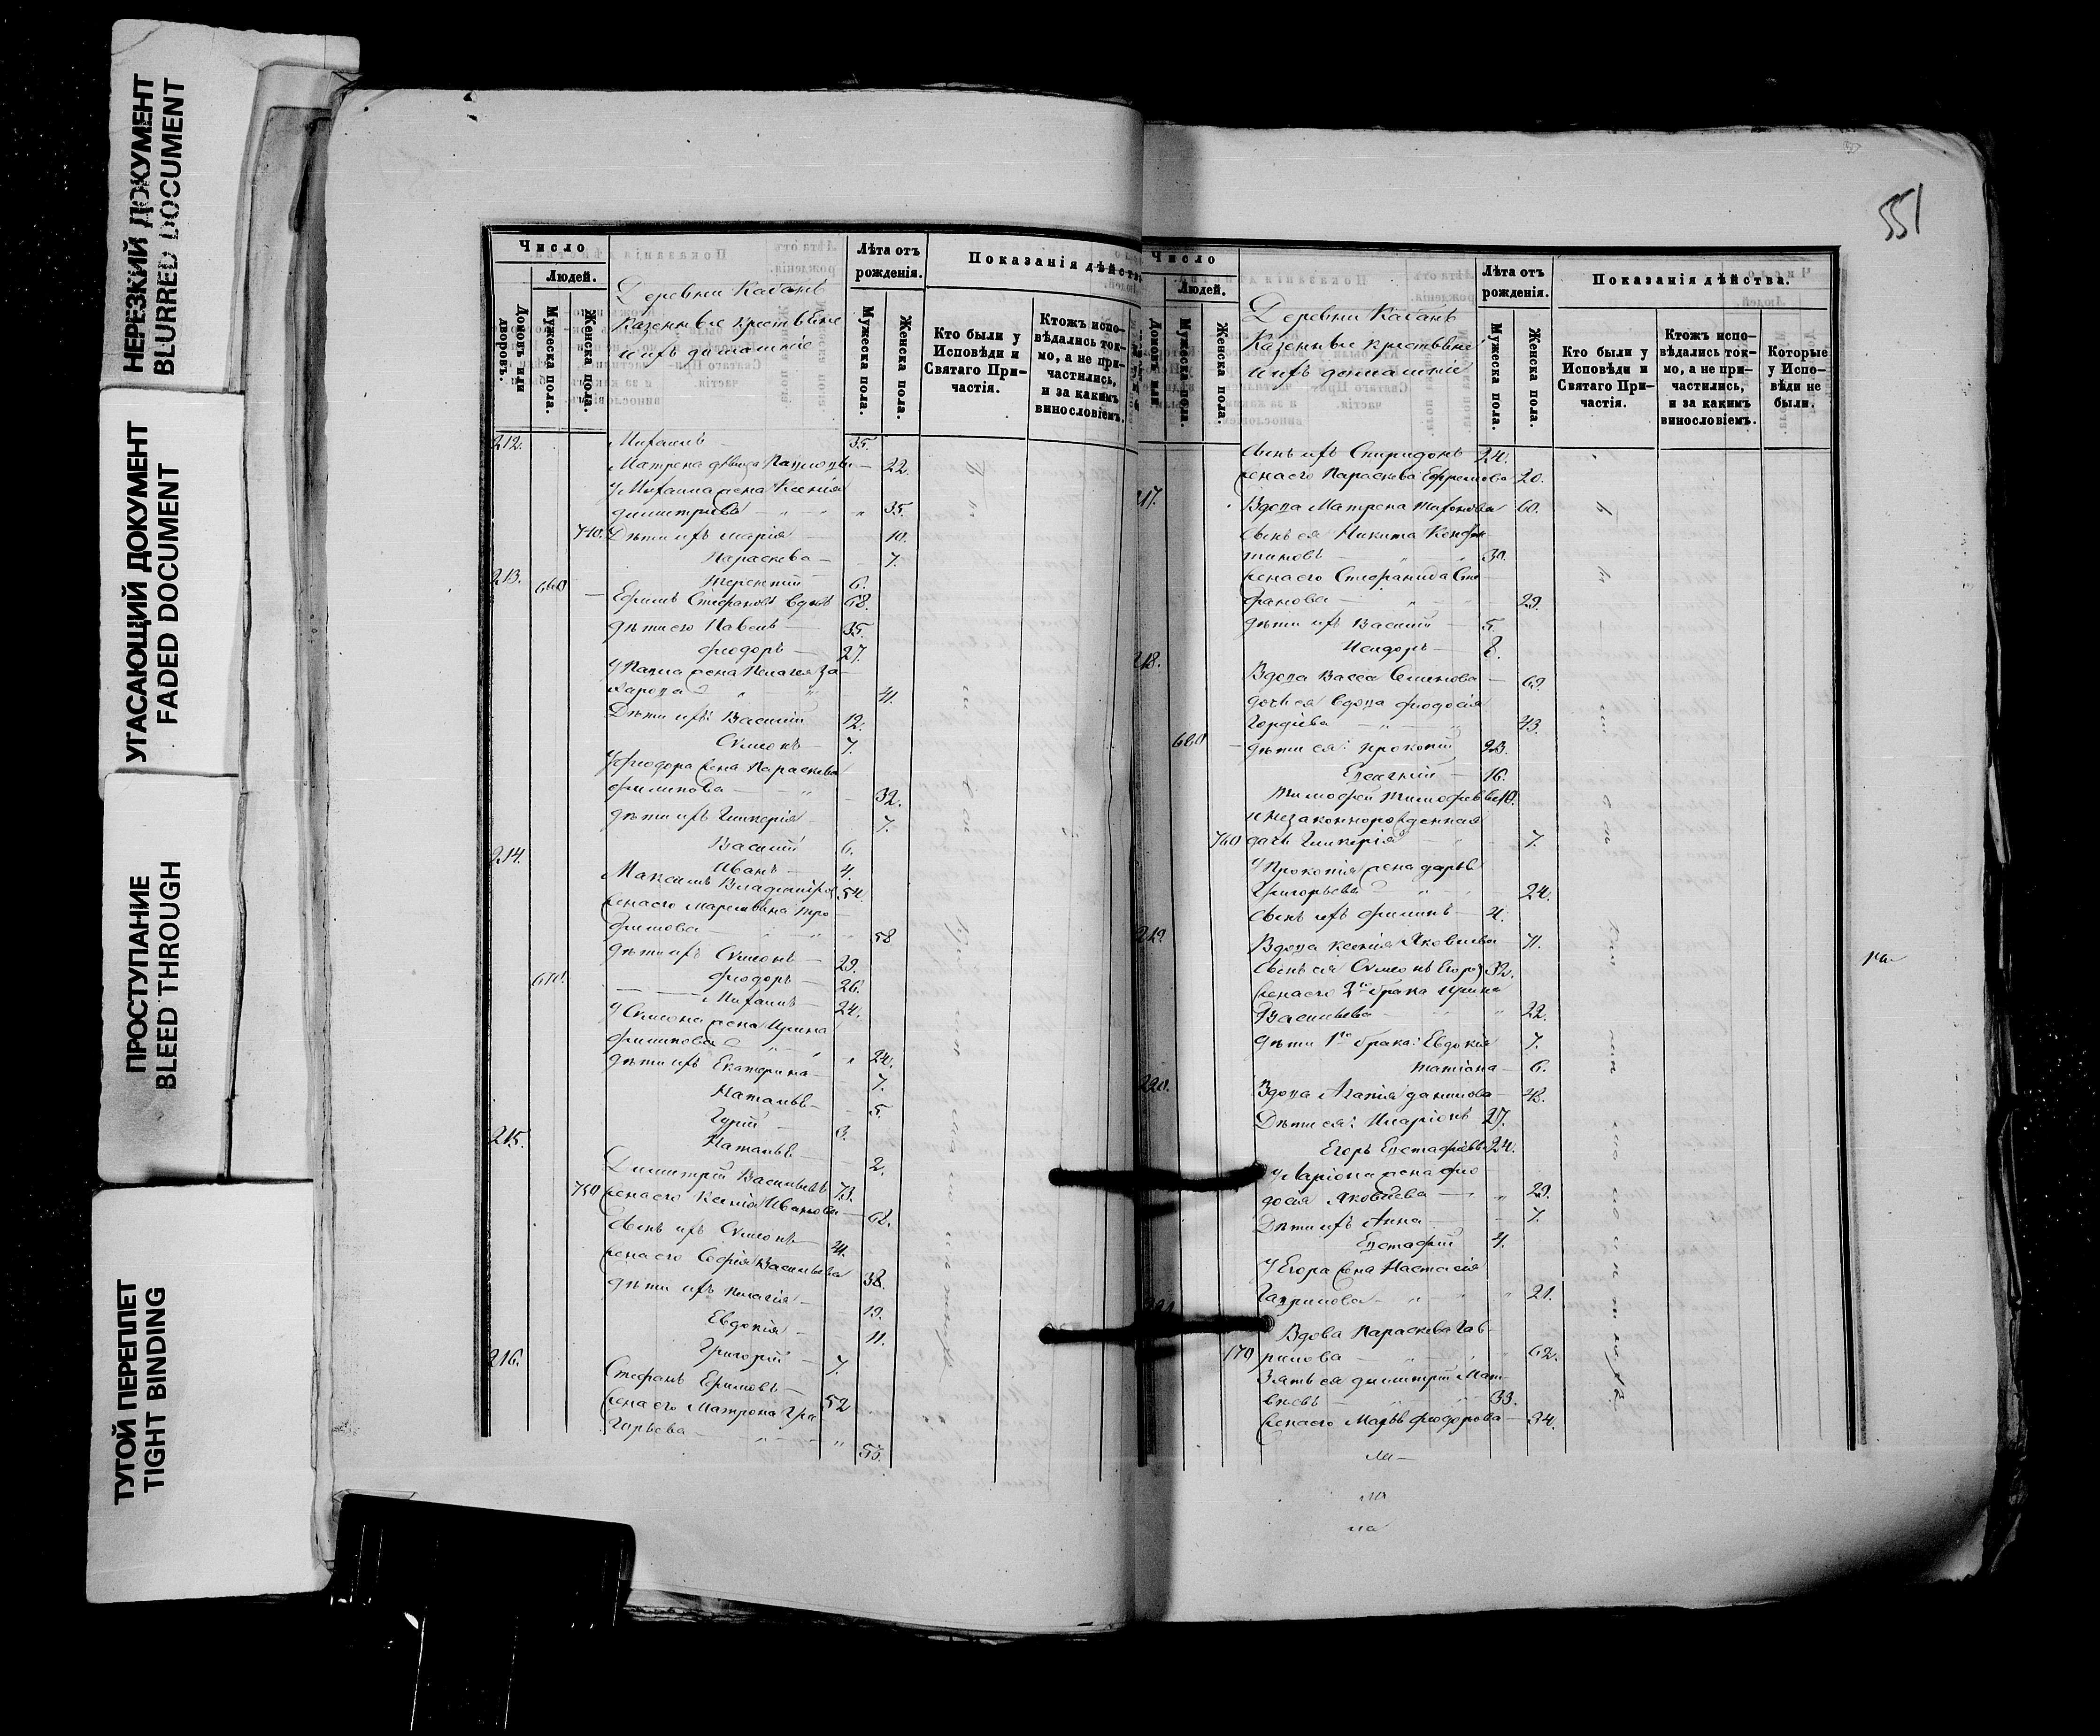 НЕРЕЗКИЙ ДОКУМЕНТ
BLURRED DOCUMENT
УГАСАЮЩИЙ ДОКУМЕНТ
FADED DOCUMENT
ПРОСТУПАНИЕ
BLEED THROUGH
ТУГОЙ ПЕРЕПЛЕТ
TIGHT BINDING
Число
Людей.
Домовъ или дворовъ.
Мужеска пола.
Женска пола.
Деревни Кабанъ
Казенные крестьяне
и ихъ домашніе
Лѣта отъ рожденія.
Мужеска пола.
Женска пола.
Показанія дѣйств
Кто были у Исповѣди и Святаго Причастія.
Ктожъ исповѣдались токмо, а не причастились, и за какимъ винословіемъ.
212. Михаилъ 35.
Матрена 22.
У Михаила жена Ксенія
Димитріева 35.
740. Дѣти ихъ Марія 10.
Параскева 7.
Терентій 6.
213. 660 Ефимъ Стефановъ вдовъ 68.
Дѣти его Павелъ 35.
Феодоръ 27.
У Павла жена Пелагея За-
харова 41.
Дѣти ихъ: Василій 12.
Симеонъ 7.
У Феодора жена Параскева
Филипова 32.
Дѣти ихъ Гликерія 7.
Василій 6.
Иванъ 4.
214. Максимъ Владиміров 54.
Жена его Мареміяна Тро-
фимова 58
Дѣти ихъ Симеонъ 29.
Феодоръ 26.
Михаилъ 24.
У Симеона жена Ирина
Филипова 24.
Дѣти ихъ Екатерина 7.
Наталья 5.
Гурій 3.
Наталья 2.
215. Димитрій Васильевъ 73.
750 Жена его Ксенія Иванова 62.
Сынъ ихъ Симеонъ 41.
Жена его Софія Васильева 38.
Дѣти ихъ Пелагія 19.
Евдокія 11.
Григорій 7.
216. Стефанъ Ефимовъ 52
Жена его Матрона Гри
горьева 53.
551
Число
Людей.
Домовъ или
Мужеска пола.
Женска пола.
Деревни Кабанъ
Казенные крестьяне
и ихъ домашніе
Лѣта отъ рожденія.
Мужеска пола.
Женска пола.
Показанія дѣйства.
Кто были у Исповѣди и Святаго Причастія.
Ктожъ исповѣдались токмо, а не причастились, и за какимъ винословіемъ.
Которые у Исповѣди не были.
Сынъ ихъ Спиридонъ 24.
Жена его Параскева Ефремова 20.
217. Вдова Матрена Тихонова 60.
Сынъ ея Никита
30.
Жена его Стефанида Сте-
фанова 29.
Дѣти ихъ Василій 5.
Исидоръ 8.
218. Вдова Васса Семенова 69.
Дочь ея вдова Феодосія
Гордіева 43.
680 Дѣти ея: Прокопій 23.
Евсигній 16.
Тимофей Тимофеевъ 10.
и незаконнорожденная
760 дочь Гликерія 7.
У Прокопія жена Дарья
Григорьева 24.
Сынъ ихъ Филипъ 4.
219 Вдова Ксенія Яковлева 71.
Сынъ ея Симеонъ Егоров 32.
Жена его 2го брака Ирина
Васильева 22.
Дѣти 1го брака: Евдокія 7.
Татіана 6.
220. Вдова Агапія Данилова 48.
Дѣти ея: Иларіонъ 27.
Егоръ Евстафьевъ 24.
У Ларіона жена Фео
досія Яковлева 29.
Дѣти ихъ Анна 7.
Евстафій 4.
У Егора жена Настасія
Гаврилова 21.
221 Вдова Параскева Гав-
770 рилова 62.
Зять ея Димитрій Мат-
вѣевъ 33.
Жена его Марья Феодорова 34.